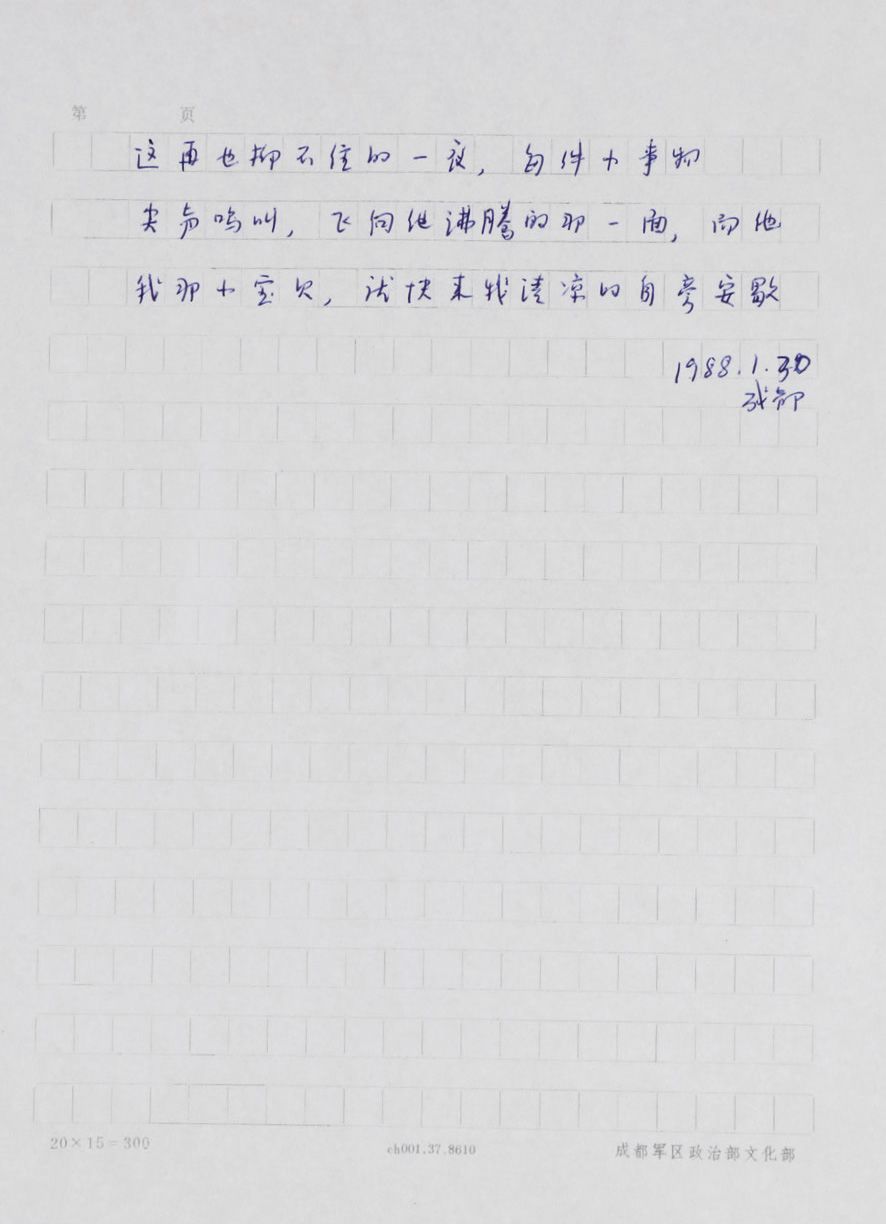 第 页
这再也抑不住的一夜,每件小事物
尖声鸣叫,飞向他沸腾的那一面,而他
我那小宝贝,请快来我清凉的身旁安歇
1988.1.30
成都
20×15=300
ch001.37.8610
成都军区政治部文化部